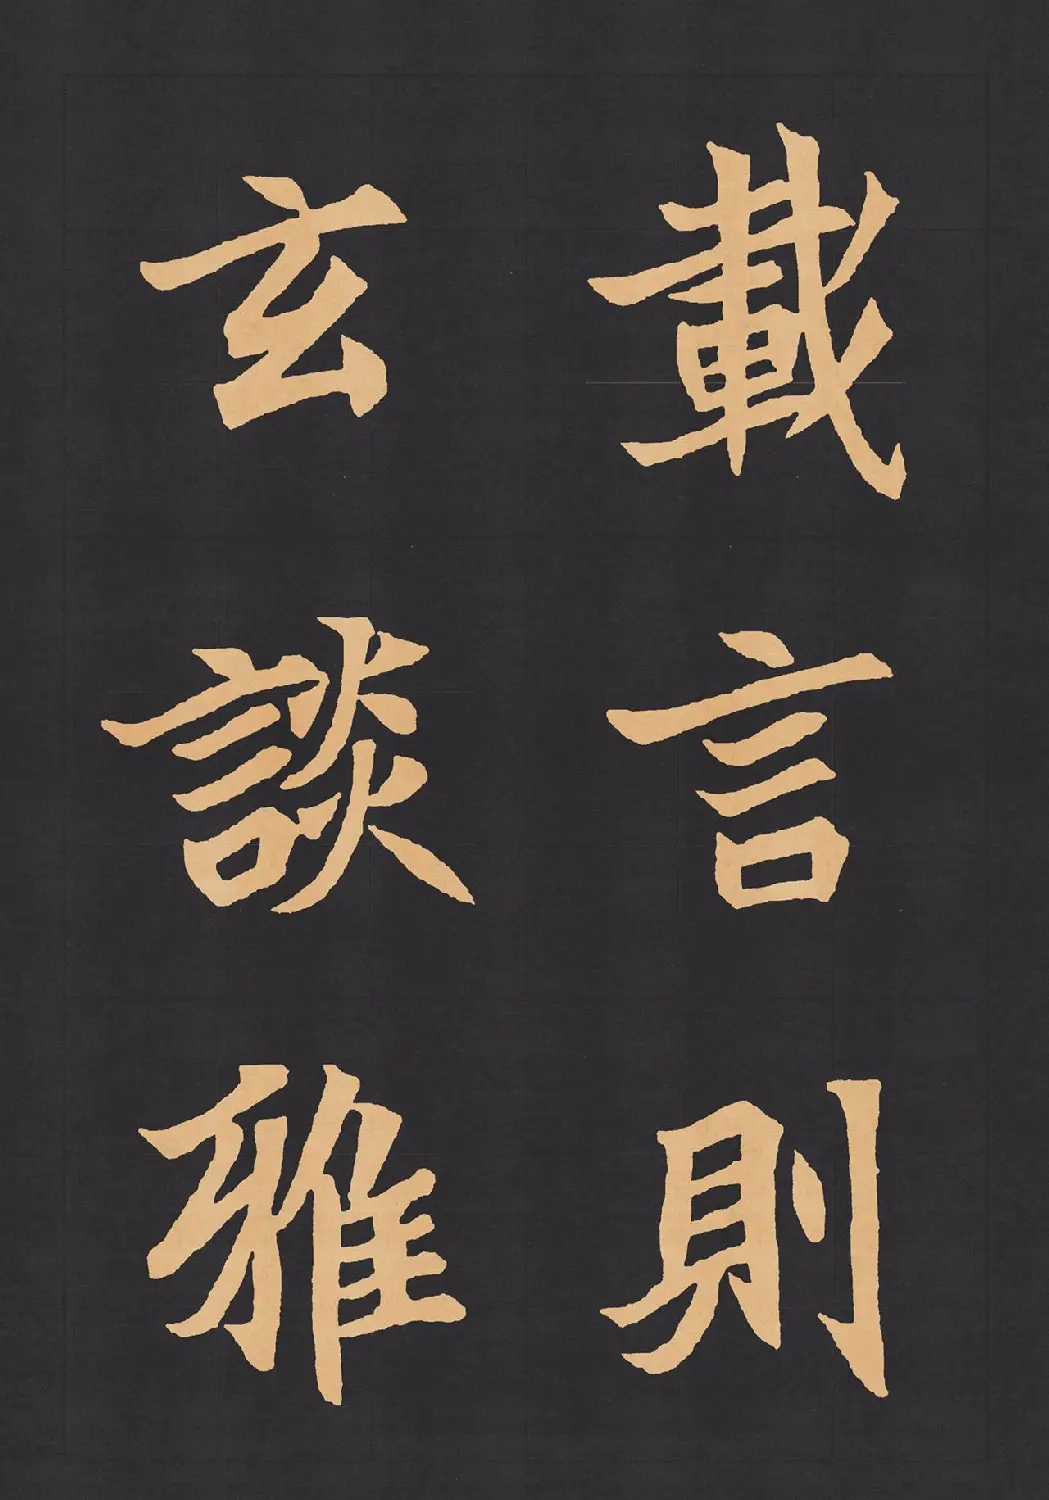 載言則
玄談雅